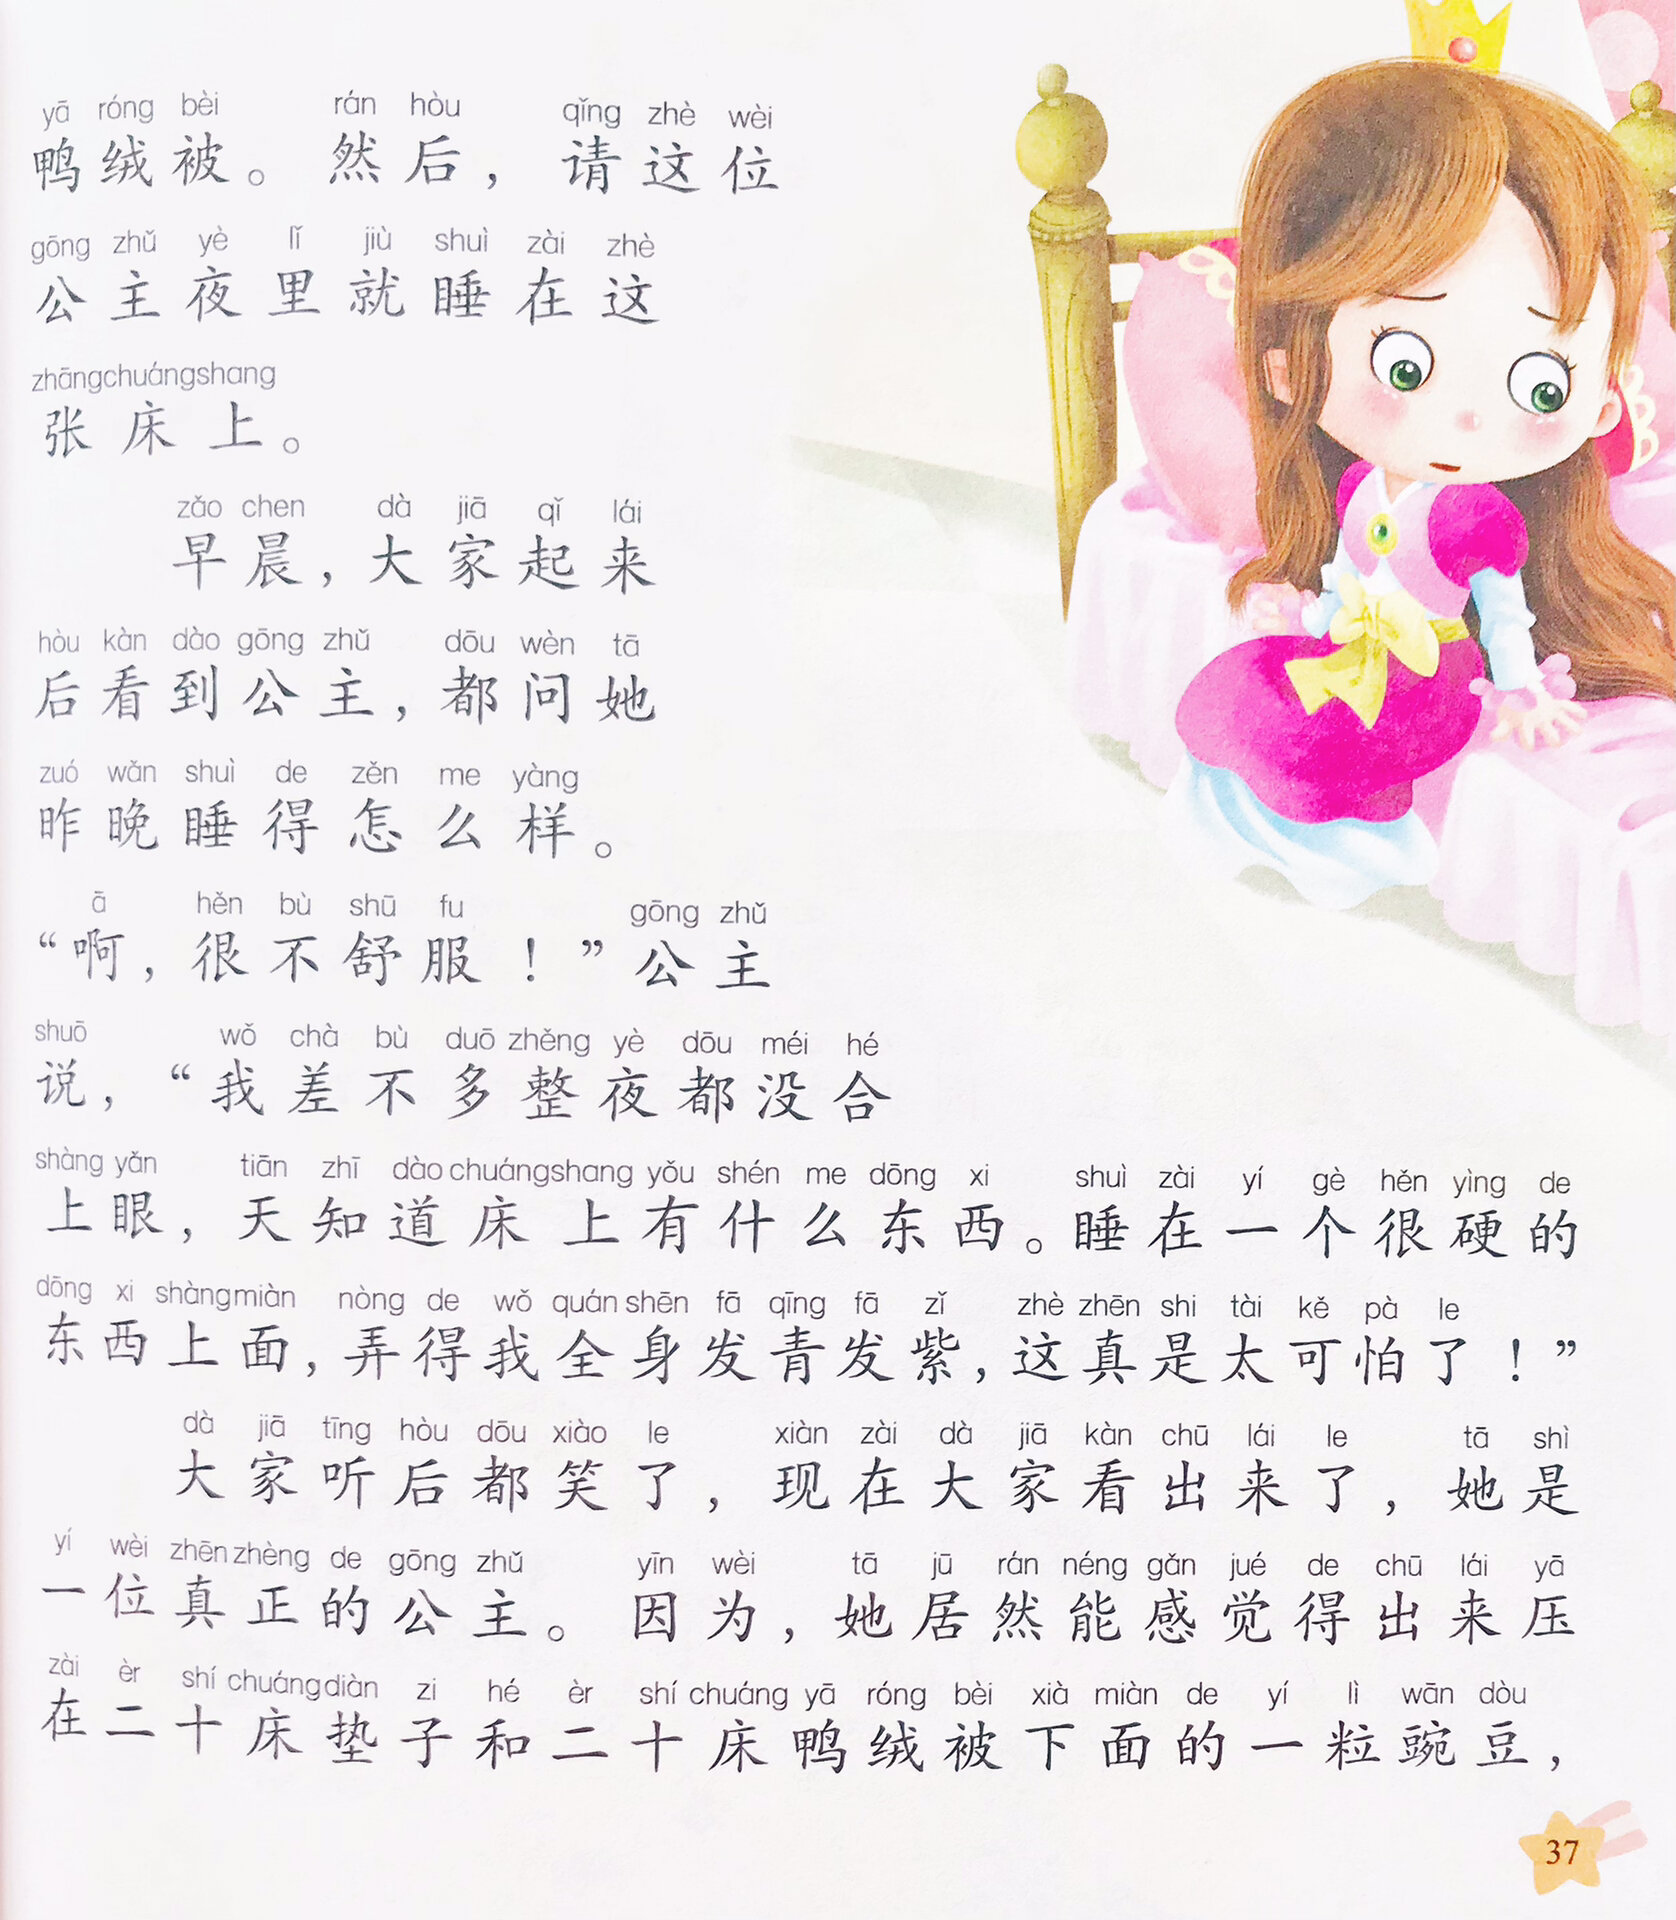 yā róng bèi rán hòu qǐng zhè wèi
鸭绒被。然后，请这位
gōng zhǔ yè lǐ jiù shuì zài zhè
公主夜里就睡在这
zhāngchuángshang
张床上。
zǎo chen dà jiā qǐ lái
早晨，大家起来
hòu kàn dào gōng zhǔ dōu wèn tā
后看到公主，都问她
zuó wǎn shuì de zěn me yàng
昨晚睡得怎么样。
ā hěn bù shū fu gōng zhǔ
“啊，很不舒服！”公主
shuō wǒ chà bù duō zhěng yè dōu méi hé
说，“我差不多整夜都没合
shàng yǎn tiān zhī dào chuángshang yǒu shén me dōng xi shuì zài yí gè hěn yìng de
上眼，天知道床上有什么东西。睡在一个很硬的
dōng xi shàngmiàn nòng de wǒ quán shēn fā qīng fā zǐ zhè zhēn shi tài kě pà le
东西上面，弄得我全身发青发紫，这真是太可怕了！”
dà jiā tīng hòu dōu xiào le xiàn zài dà jiā kàn chū lái le tā shì
大家听后都笑了，现在大家看出来了，她是
yí wèi zhēn zhèng de gōng zhǔ yīn wèi tā jū rán néng gǎn jué de chū lái yā
一位真正的公主。因为，她居然能感觉得出来压
zài èr shí chuángdiàn zi hé èr shí chuáng yā róng bèi xià miàn de yí lì wān dòu
在二十床垫子和二十床鸭绒被下面的一粒豌豆，
37